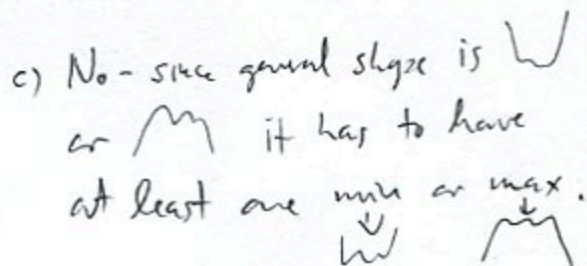 c) No - since general shape is
or it has to have
at least one min or max.